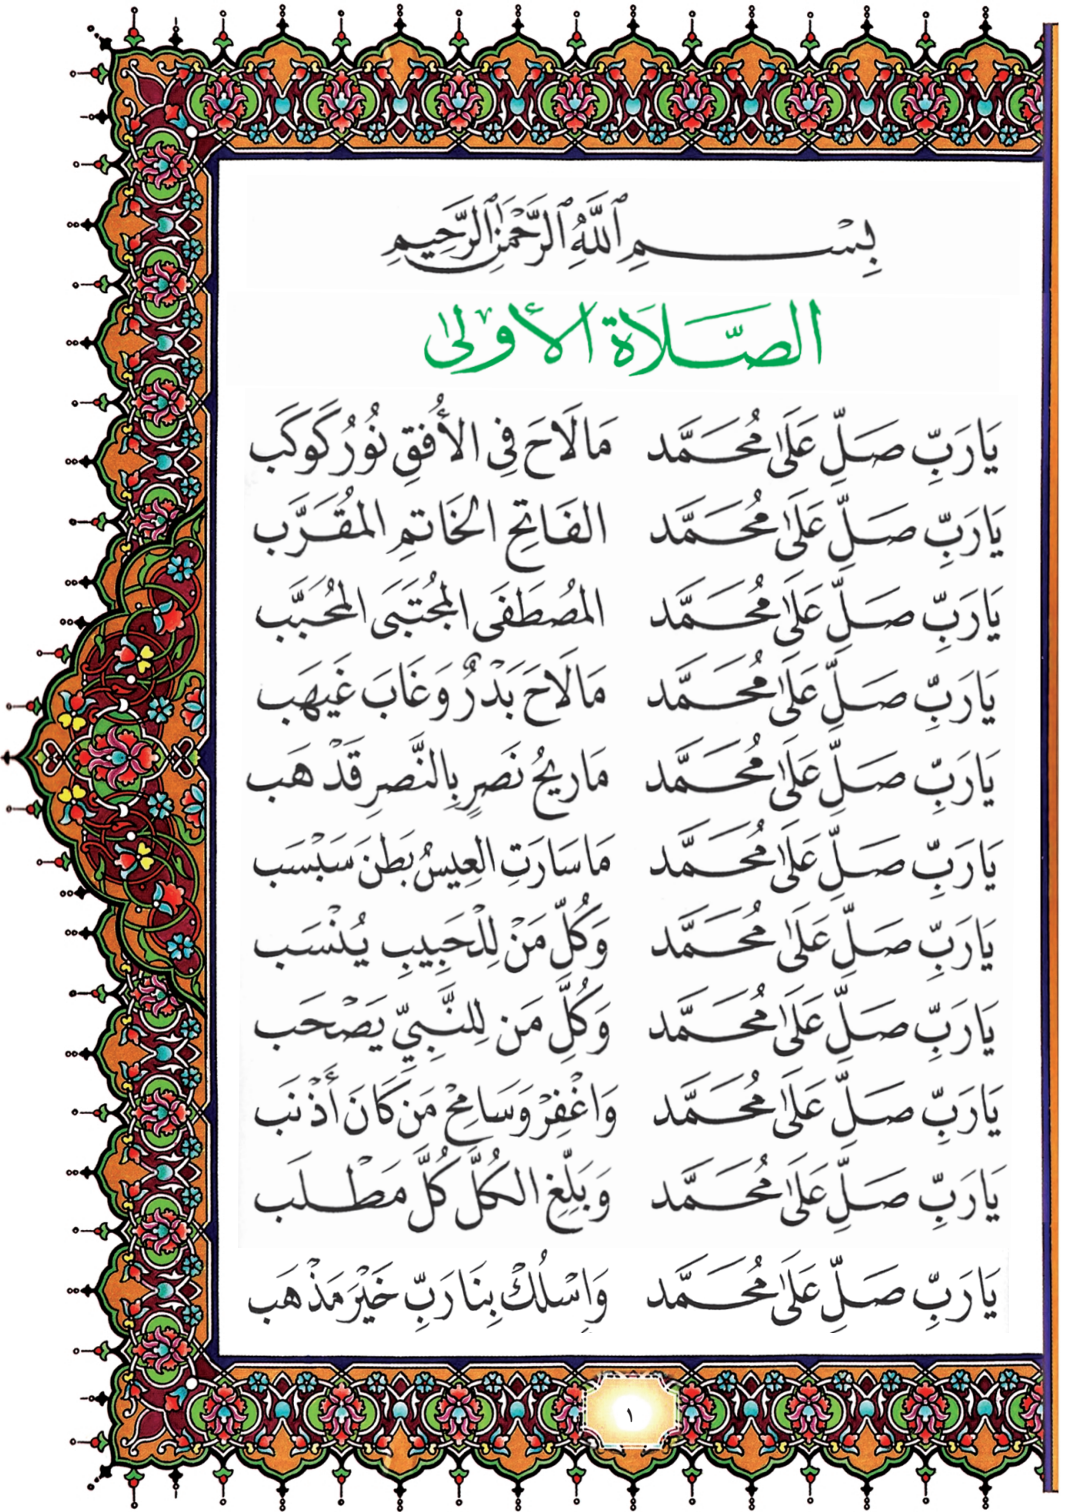 بِسْمِ ٱللَّهِ ٱلرَّحْمَٰنِ ٱلرَّحِيمِ
الصَّلَاةُ الأُولَىٰ
يَارَبِّ صَلِّ عَلَىٰ مُحَمَّد مَالَاحَ فِي الأُفقِ نُورُ كَوكَب
يَارَبِّ صَلِّ عَلَىٰ مُحَمَّد الفَاتِحِ الخَاتِمِ المُقَرَّب
يَارَبِّ صَلِّ عَلَىٰ مُحَمَّد المُصطَفَى المُجتَبَى المُحَبَّب
يَارَبِّ صَلِّ عَلَىٰ مُحَمَّد مَالَاحَ بَدْرٌ وَغَابَ غَيهَب
يَارَبِّ صَلِّ عَلَىٰ مُحَمَّد مَارِيحُ نَصرٍ بِالنَّصرِ قَدْ هَب
يَارَبِّ صَلِّ عَلَىٰ مُحَمَّد مَاسَارَتِ العِيسُ بَطنَ سَبْسَب
يَارَبِّ صَلِّ عَلَىٰ مُحَمَّد وَكُلِّ مَنْ لِلْحَبِيبِ يُنْسَب
يَارَبِّ صَلِّ عَلَىٰ مُحَمَّد وَكُلِّ مَن لِلنَّبِيِّ يَصْحَب
يَارَبِّ صَلِّ عَلَىٰ مُحَمَّد وَاغْفِرْ وَسَامِحْ مَن كَانَ أَذْنَب
يَارَبِّ صَلِّ عَلَىٰ مُحَمَّد وَبَلِّغِ الكُلَّ كُلَّ مَطْلَب
يَارَبِّ صَلِّ عَلَىٰ مُحَمَّد وَاسْلُكْ بِنَا رَبِّ خَيْرَ مَذْهَب
١